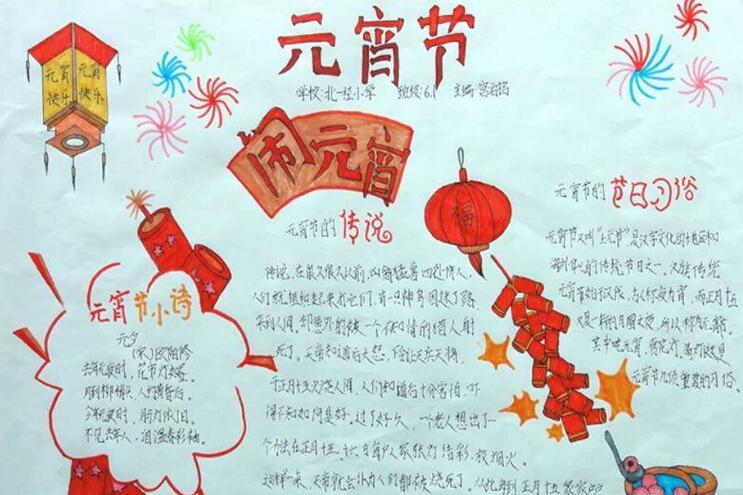 元宵节
学校:北一经小学 班级:6.1 主编:
元宵 元宵
快乐 快乐
闹元宵
福
元宵节的 传说
传说,在很久很久以前,凶禽猛兽四处伤人,
人们就组织起来打它们,有一只神鸟因迷了路
来到人间,却意外的被一个不知情的猎人射
死了。天帝知道后大怒,下令让天兵天将
正月十五火烧人间,人们知道后十分害怕,吓
得不知如何是好,过了好久,一个老人想出了一
个办法在正月十五、十六日家张灯结彩,放烟火
这样一来,天帝就会以为人们都被烧死了。从此每到正月十五
元宵节小诗
元夕
(宋)欧阳修
去年元夜时,花市灯如昼。
月到柳梢头,人约黄昏后。
今年元夜时,月灯依旧。
不见去年人,泪湿春衫袖。
元宵节的 节日习俗
元宵节又叫"上元节"是汉字文化圈地区和
海外华人的传统节日之一。汉族传统
元宵节始于汉代,古人称夜为宵,而正月十五
又是一年的月圆之夜,所以称为元宵。
其中吃元宵、赏花灯、
元宵节几项重要的习俗。